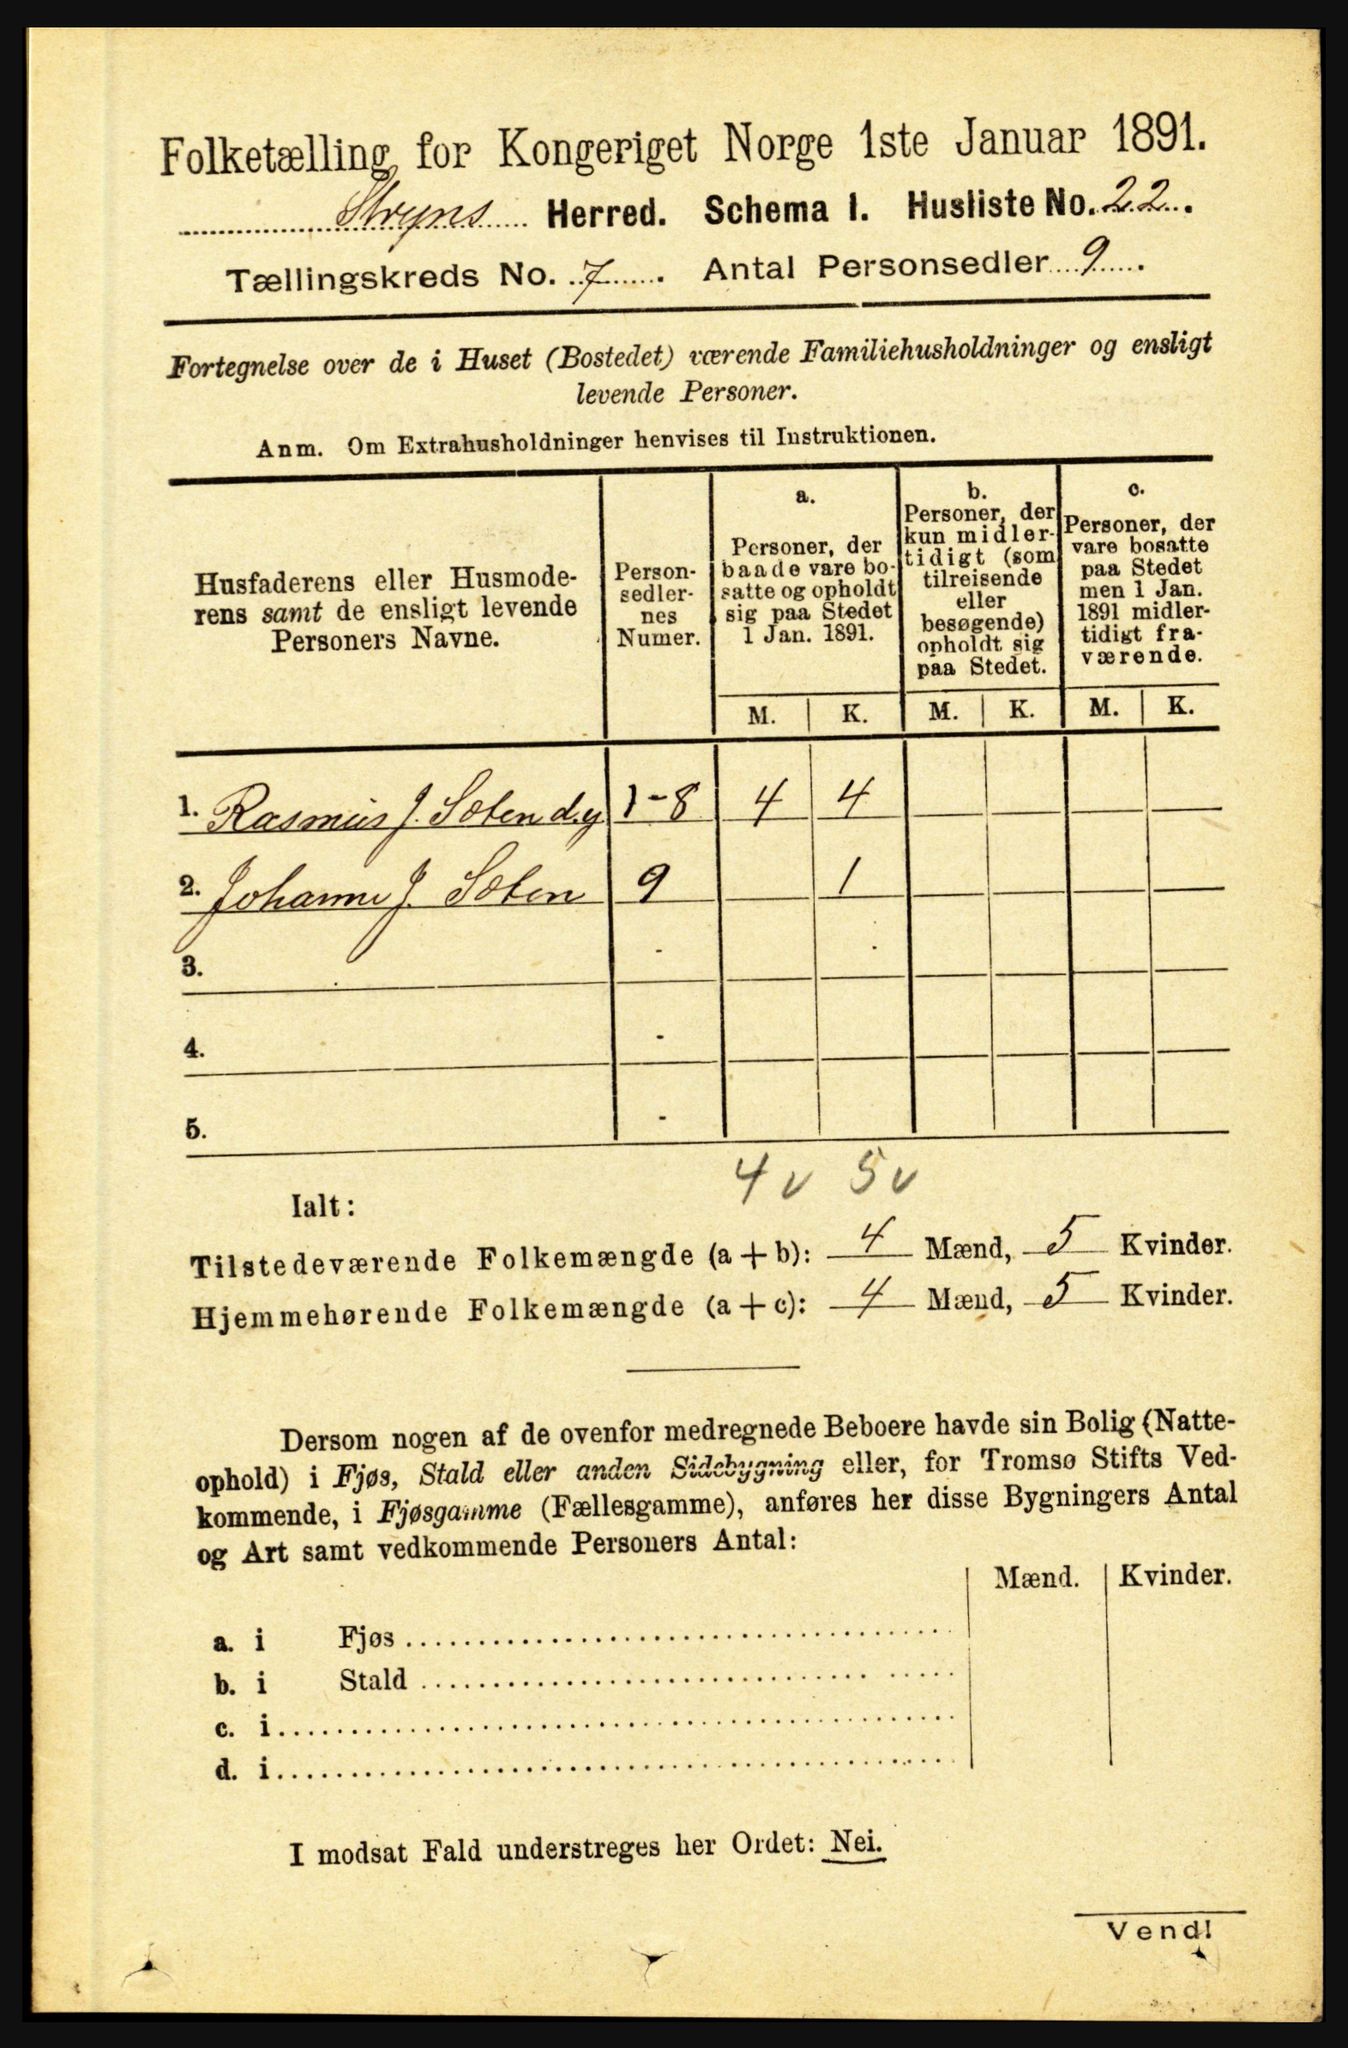 Folketælling for Kongeriget Norge 1ste Januar 1891.
Stryns Herred. Schema 1. Husliste No. 22.
Tællingskreds No. 7. Antal Personsedler 9.
Fortegnelse over de i Huset (Bostedet) værende Familiehusholdninger og ensligt
levende Personer.
Anm. Om Extrahusholdninger henvises til Instruktionen.
Husfaderens eller Husmode-
rens samt de ensligt levende
Personers Navne.
Person-
sedler-
nes
Numer.
a.
Personer, der
baade vare bo-
satte og opholdt
sig paa Stedet
1 Jan. 1891.
b.
Personer, der
kun midler-
tidigt (som
tilreisende
eller
besøgende)
opholdt sig
paa Stedet.
c.
Personer, der
vare bosatte
paa Stedet
men 1 Jan.
1891 midler-
tidigt fra-
værende.
M. K. M. K. M. K.
1. Rasmus J. Sæten d.y 1-8 4 4
2. Johanne J. Sæten 9 1
3. -
4. -
5. -
4 v 5 v
Ialt:
Tilstedeværende Folkemængde (a + b): 4 Mænd, 5 Kvinder.
Hjemmehørende Folkemængde (a + c): 4 Mænd, 5 Kvinder.
Dersom nogen af de ovenfor medregnede Beboere havde sin Bolig (Natte-
ophold) i Fjøs, Stald eller anden Sidebygning eller, for Tromsø Stifts Ved-
kommende, i Fjøsgamme (Fællesgamme), anføres her disse Bygningers Antal
og Art samt vedkommende Personers Antal:
Mænd. Kvinder.
a. i Fjøs
b. i Stald
c. i
d. i
I modsat Fald understreges her Ordet: Nei.
Vend!